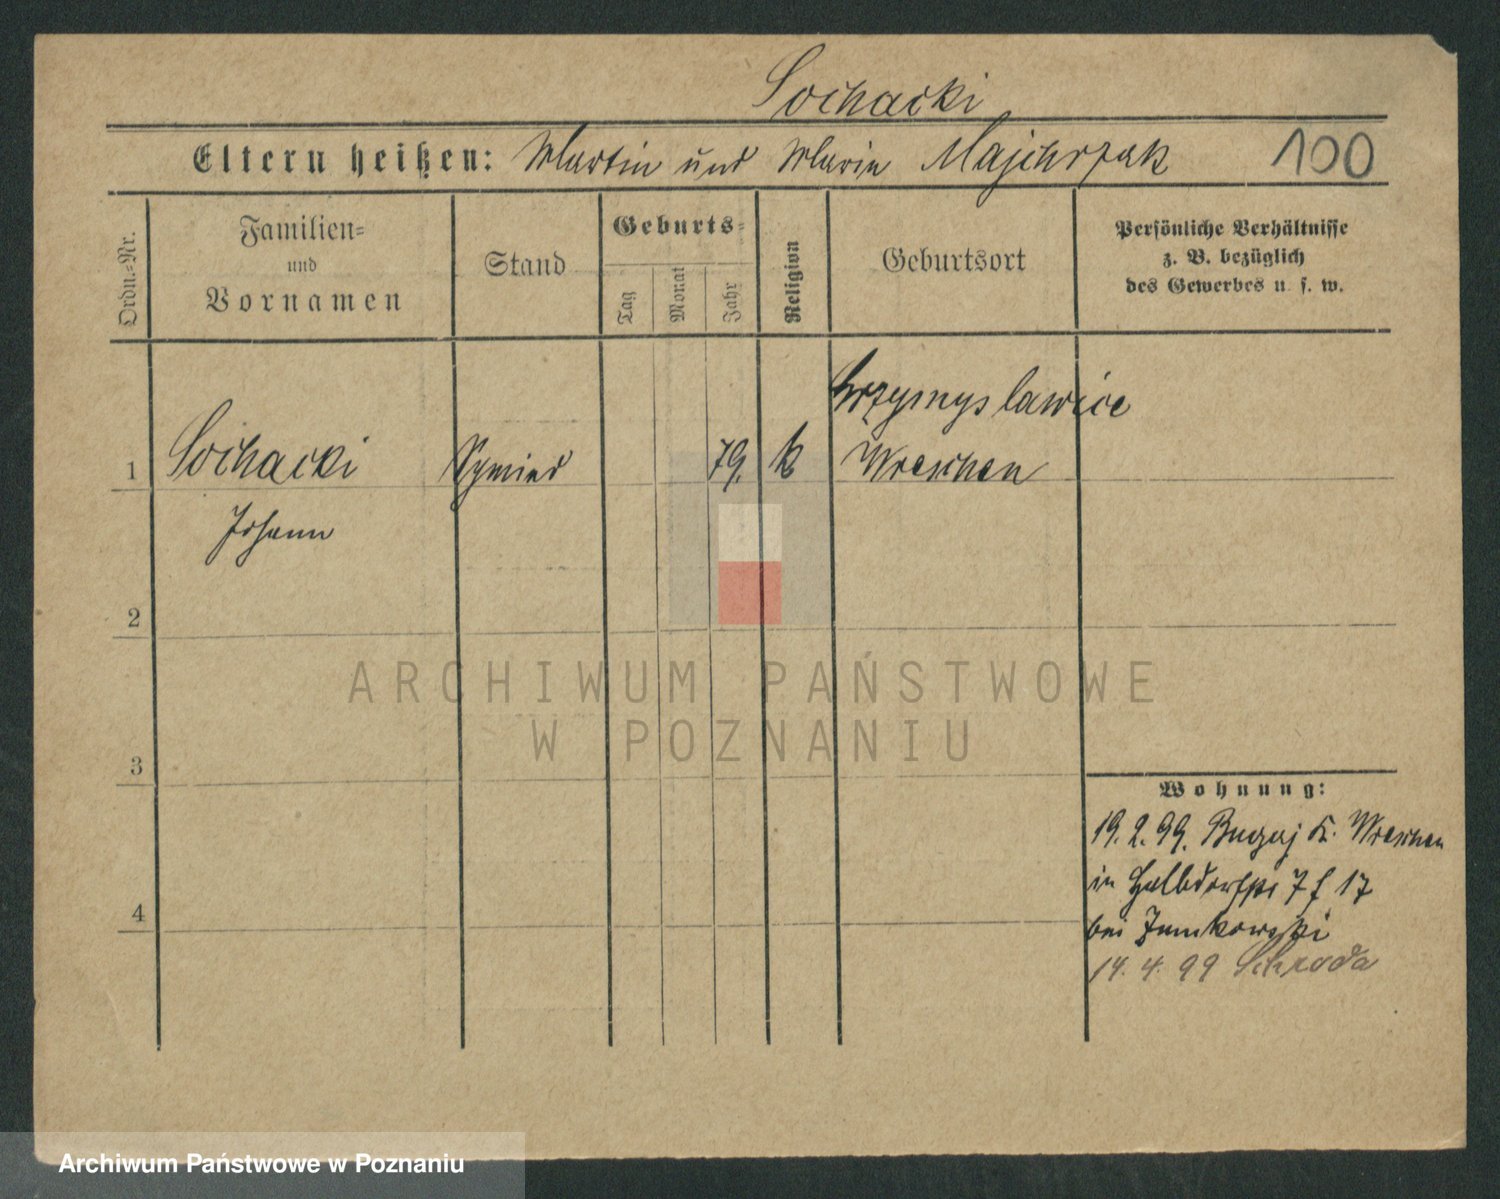 Sochacki
Eltern heißen: Martin und Marie Majchrzak 100
Ordn.-Nr.
Familien-
und
Vornamen
Stand
Geburts-
Tag
Monat
Jahr
Religion
Geburtsort
Persönliche Verhältnisse
z. B. bezüglich
des Gewerbes u. s. w.
1 Sochacki
Johann
Schmied
79.
k
Przymyslawice
Wreschen
2
3
4
Wohnung:
19. 2. 99. Bugaj K. Wreschen
in Halbdorfstr 7 f 17
bei
14. 4. 99 Schroda
ARCHIWUM PAŃSTWOWE
W POZNANIU
Archiwum Państwowe w Poznaniu